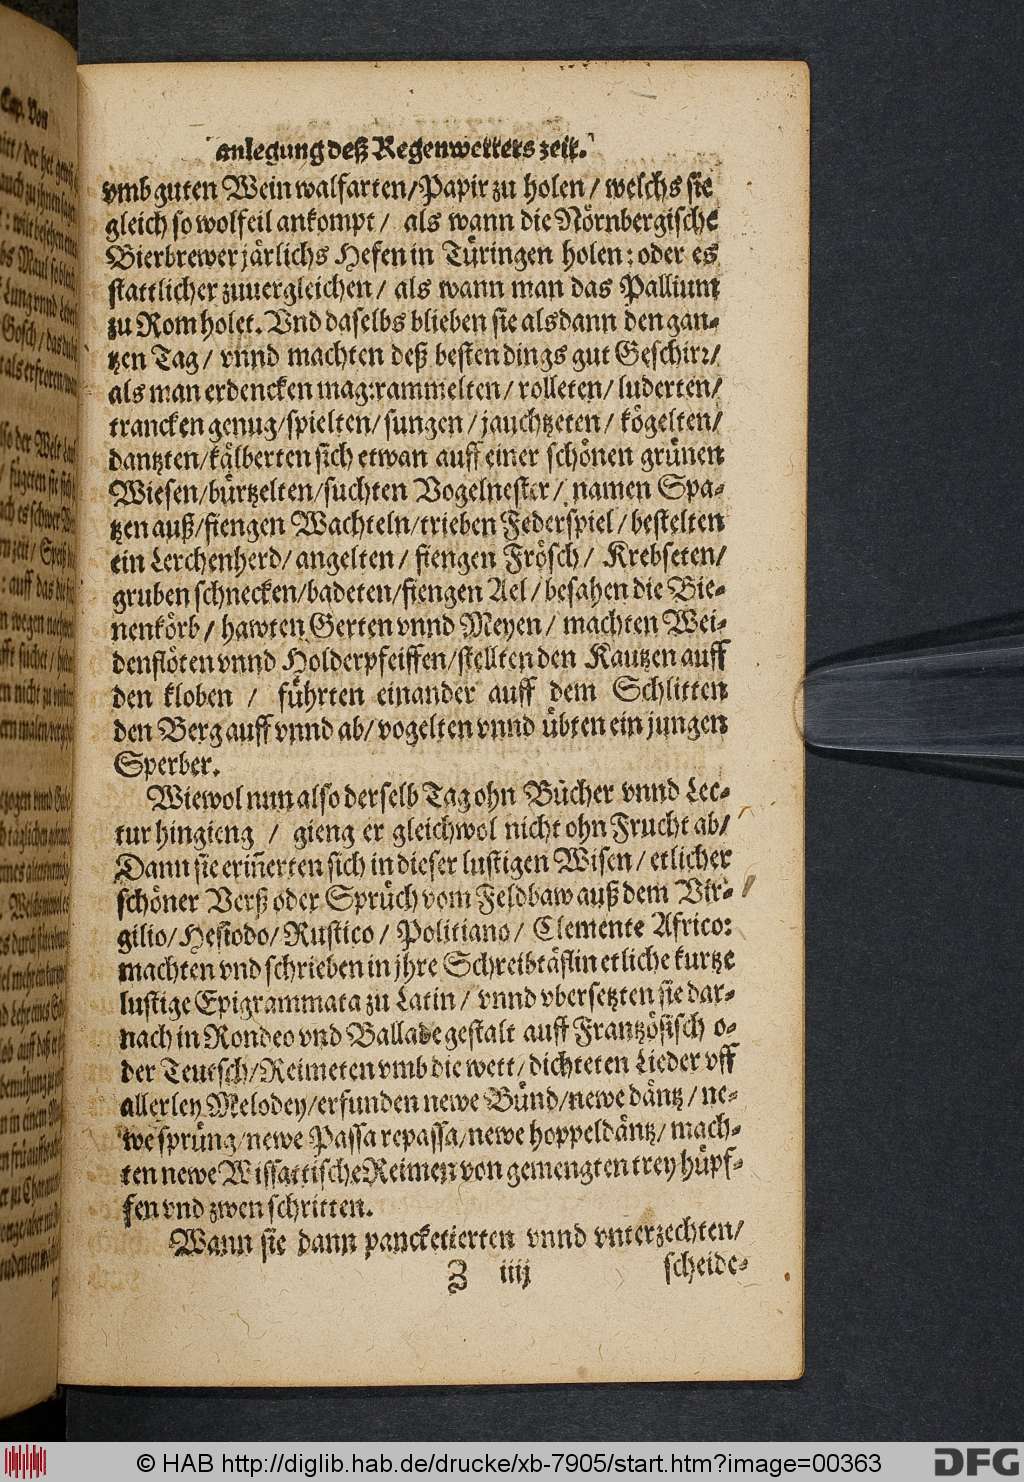 Cap. Von
anlegung deß Regenwetters zeit.
vmb guten Wein walfarten/Papir zu holen / welchs sie
gleich so wolfeil ankompt / als wann die Nörnbergische
Bierbrewer järlichs Hefen in Türingen holen: oder es
stattlicher zuuergleichen / als wann man das Pallium
zu Rom holet. Vnd daselbs blieben sie alsdann den gan-
tzen Tag / vnnd machten deß besten dings gut Geschirr/
als man erdencken mag: rammelten / rolleten / luderten/
trancken genug/spielten/sungen / jauchtzeten / kögelten/
dantzten/kälberten sich etwan auff einer schönen grünen
Wiesen/bürtzelten/suchten Vogelnester / namen Spa-
tzen auß/fiengen Wachteln/trieben Federspiel / bestelten
ein Lerchenherd/ angelten / fiengen Frösch / Krebseten/
gruben schnecken/badeten/fiengen Ael / besahen die Bie-
nenkörb / hawten Gerten vnnd Meyen / machten Wei-
denflöten vnnd Holderpfeiffen/stellten den Kautzen auff
den kloben / führten einander auff dem Schlitten
den Berg auff vnnd ab/ vogelten vnnd übten ein jungen
Sperber.
Wiewol nun also derselb Tag ohn Bücher vnnd Lec-
tur hingieng / gieng er gleichwol nicht ohn Frucht ab/
Dann sie eriñerten sich in dieser lustigen Wisen / etlicher
schöner Verß oder Sprüch vom Feldbaw auß dem Vir-
gilio/ Hesiodo/ Rustico / Politiano / Clemente Africo:
machten vnd schrieben in jhre Schreibtäflin etliche kurtze
lustige Epigrammata zu Latin / vnnd vbersetzten sie dar-
nach in Rondeo vnd Ballade gestalt auff Frantzösisch o-
der Teutsch/Reimeten vmb die wett / dichteten Lieder vff
allerley Melodey/erfunden newe Bünd/newe däntz / ne-
we sprüng/newe Passa repassa/newe hoppeldäntz/ mach-
ten newe Wissattische Reimen von gemengten trey hüpf-
fen vnd zwen schritten.
Wann sie dann pancketierten vnnd vnterzechten/
Z iiij
scheide-
© HAB http://diglib.hab.de/drucke/xb-7905/start.htm?image=00363
DFG